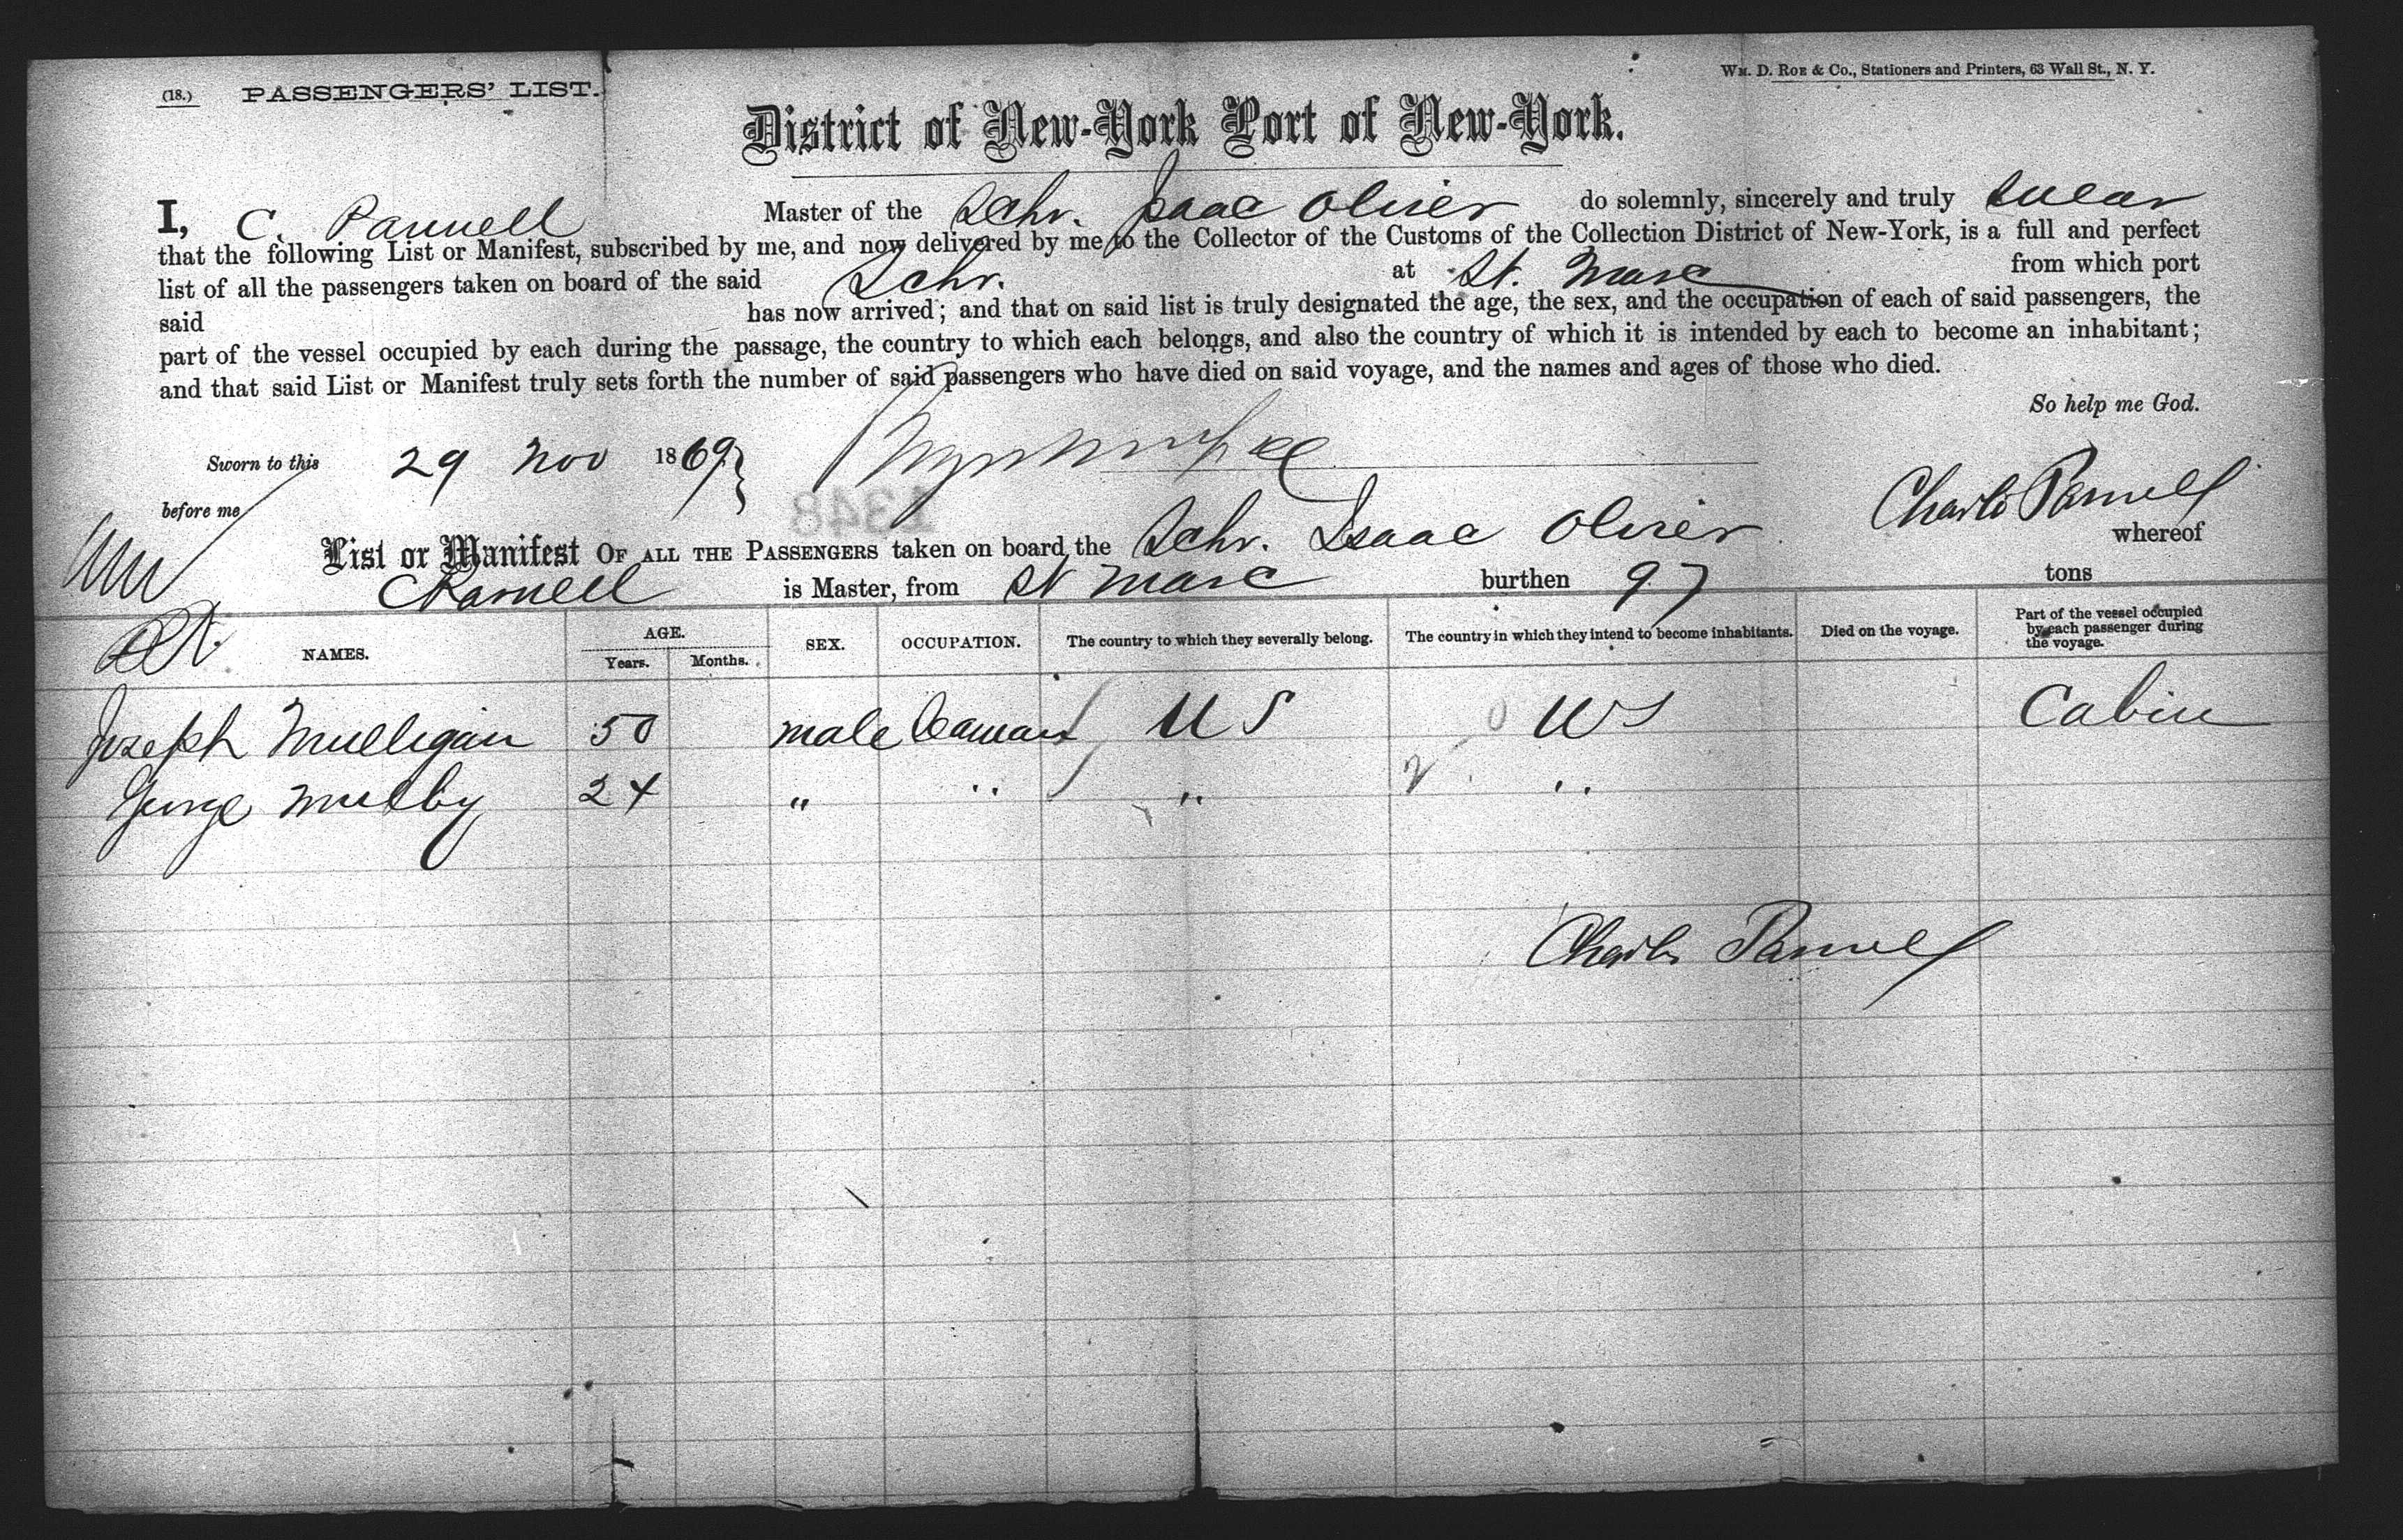 (18.) PASSENGERS' LIST.
WM. D. ROE & Co., Stationers and Printers, 63 Wall St., N. Y.
District of New-York Port of New-York.
I, C. Parnell Master of the Schr. Isaac Oliver do solemnly, sincerely and truly swear
that the following List or Manifest, subscribed by me, and now delivered by me to the Collector of the Customs of the Collection District of New-York, is a full and perfect
list of all the passengers taken on board of the said Schr. at St. Marc from which port
said has now arrived; and that on said list is truly designated the age, the sex, and the occupation of each of said passengers, the
part of the vessel occupied by each during the passage, the country to which each belongs, and also the country of which it is intended by each to become an inhabitant;
and that said List or Manifest truly sets forth the number of said passengers who have died on said voyage, and the names and ages of those who died.
So help me God.
Sworn to this 29 Nov 1869
before me
Charles Parnell
1348
List or Manifest OF ALL THE PASSENGERS taken on board the Schr. Isaac Oliver whereof
C Parnell is Master, from St Marc burthen 97 tons
NAMES. AGE. Years. Months. SEX. OCCUPATION. The country to which they severally belong. The country in which they intend to become inhabitants. Died on the voyage. Part of the vessel occupied by each passenger during the voyage.
Joseph Mulligan 50 male Seaman U S U S Cabin
George 24 " " " "
Charles Parnell